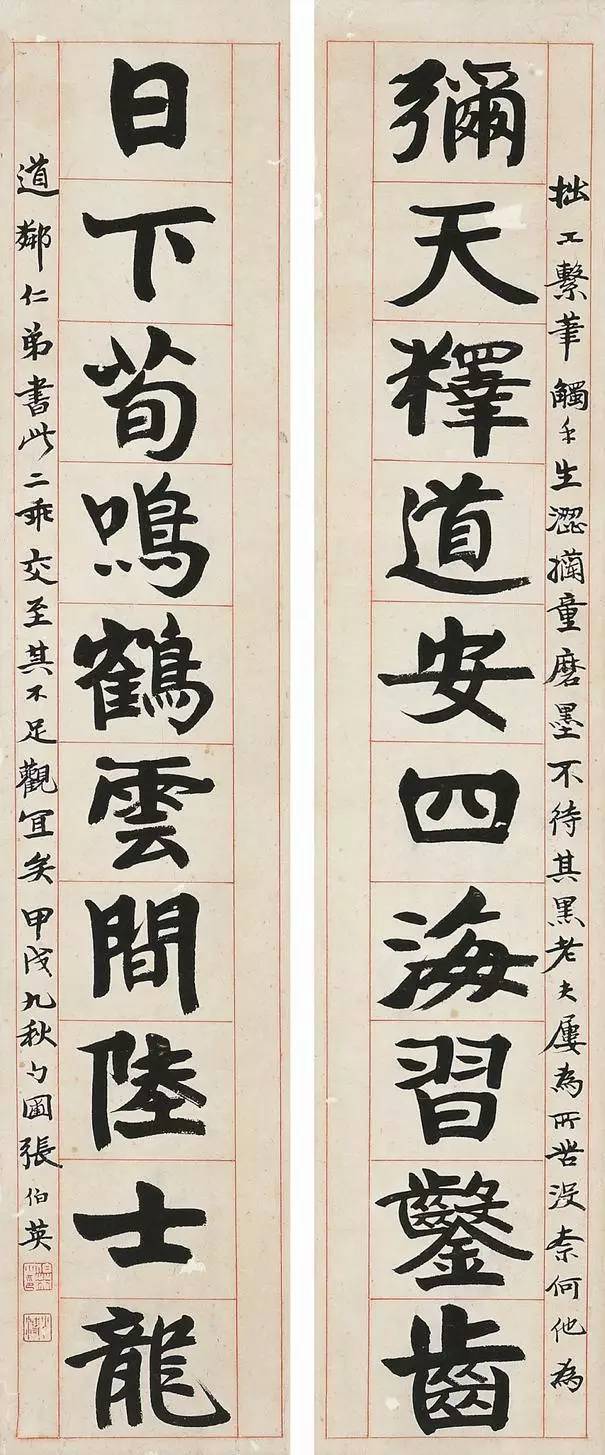 彌天釋道安四海習鑿齒
拙工繫筆觸手生澀摛童磨墨不待其黑老夫屢為所苦沒柰何他為
日下荀鳴鶴雲間陸士龍
道鄰仁弟書此二乖交至其不足觀宜矣甲戌九秋勺圃張伯英